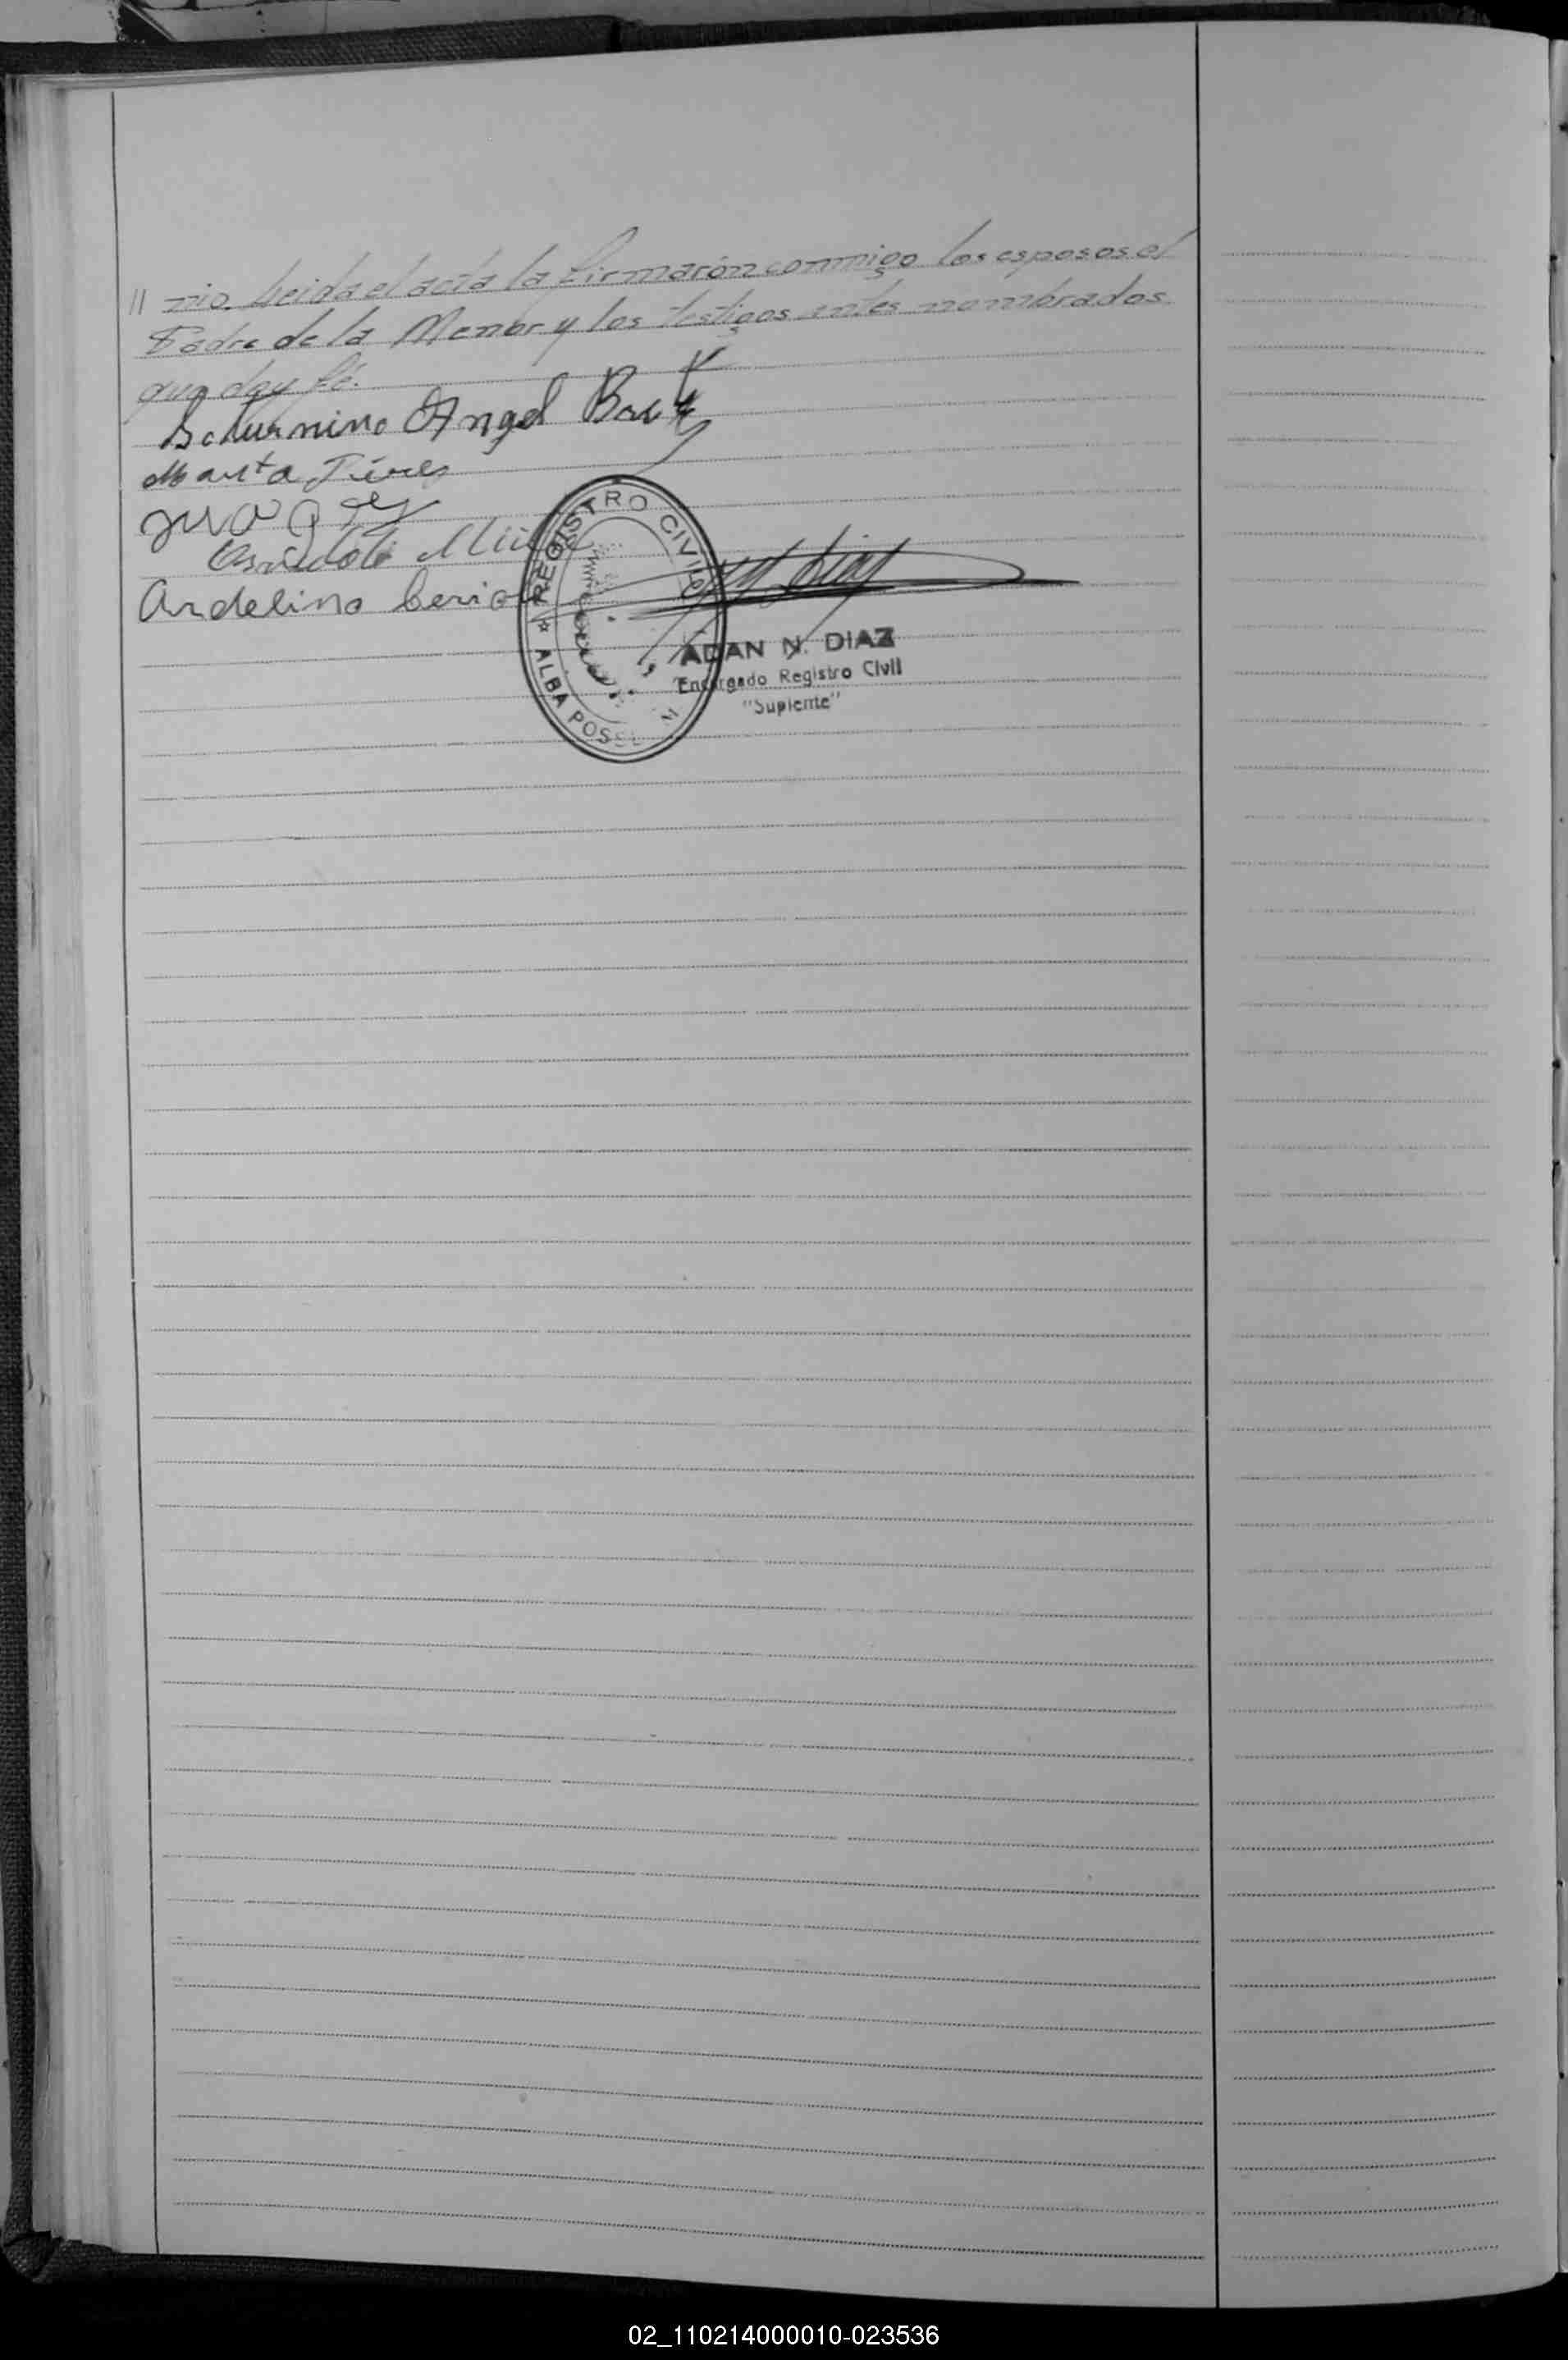 // nio. Leida el acta la firmarón conmigo los esposos el
Padre de la Menor y los testigos antes nombrados
que doy fé.
Saturnino Angel
Marta
Ardelino
REGISTRO CIVIL
ALBA POSSE
ADAN N. DIAZ
Encargado Registro Civil
"Suplente"
02_110214000010-023536